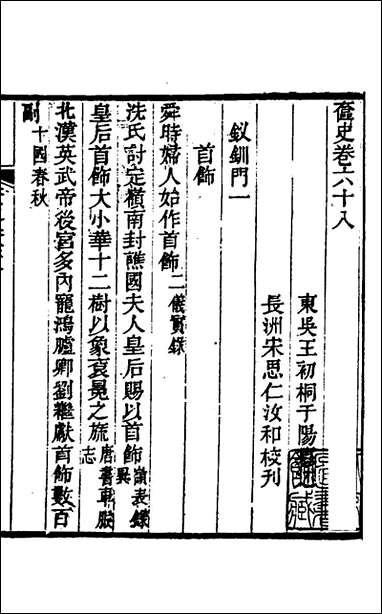 奩史卷六十八
東吳王初桐于陽
長洲宋思仁汝和校刊
釵釧門一
首飾
舜時婦人始作首飾二儀實錄
洗氏討定嶺南封譙國夫人皇后賜以首飾謝表錄異
皇后首飾大小華十二樹以象衮冕之旒唐書車服志
北漢英武帝後宮多內寵鴻臚卿劉繼獻首飾數百
副十國春秋